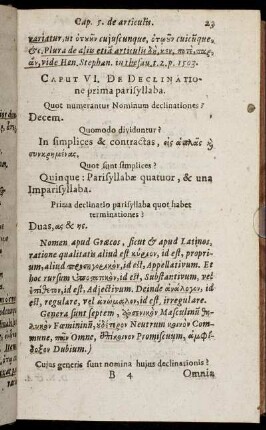 Cap. 5. de articulis. 23
variatur, ut ὁτῳοῦν cujuscunque, ὁτῳοῦν cuicũque,
&c. Plura de usu etiã articuli
vide Hen. Stephan. in thesau. t. 2. p. 1503.
CAPUT VI. DE DECLINATIO-
ne prima parisyllaba.
Quot numerantur Nominum declinationes?
Decem.
Quomodo dividuntur?
In simplices & contractas, εἰς ἁπλᾶς κ̀
συνῃρημένας.
Quot sunt simplices?
Quinque: Parisyllabæ quatuor, & una
Imparisyllaba.
Prima declinatio parisyllaba quot habet
terminationes?
Duas, ας & ης.
Nomen apud Græcos, sicut & apud Latinos,
ratione qualitatis aliud est κύριον, id est, propri-
um, aliud προσηγορικὸν, id est, Appellativum. Et
hoc rursum id est, Substantivum, vel
ἐπίθετον, id est, Adjectivum. Deinde ἀνάλογον, id
est, regulare, vel ἀνώμαλον, id est, irregulare.
Genera sunt septem, ἀρσενικὸν Masculinũ θη-
λυκὸν Femininũ, οὐδέτερον Neutrum κοινὸν Com-
mune, πᾶν Omne, ἐπίκοινον Promiscuum, ἀμφί-
δοξον Dubium.)
Cujus generis sunt nomina hujus declinationis?
B 4 Omnia